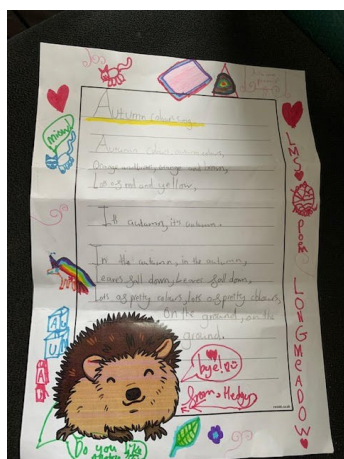 Autumn colours
Autumn colours, autumn colours,
Orange and brown, orange and brown,
Lots of red and yellow,
It's autumn, its autumn.
In the autumn, in the autumn,
Leaves fall down, leaves fall down,
Lots of pretty colours, lots of pretty colours,
On the ground, on the
ground.
miaow
LMS
poem
LONGMEADOW
bye!
from, Hedgy
Do you like